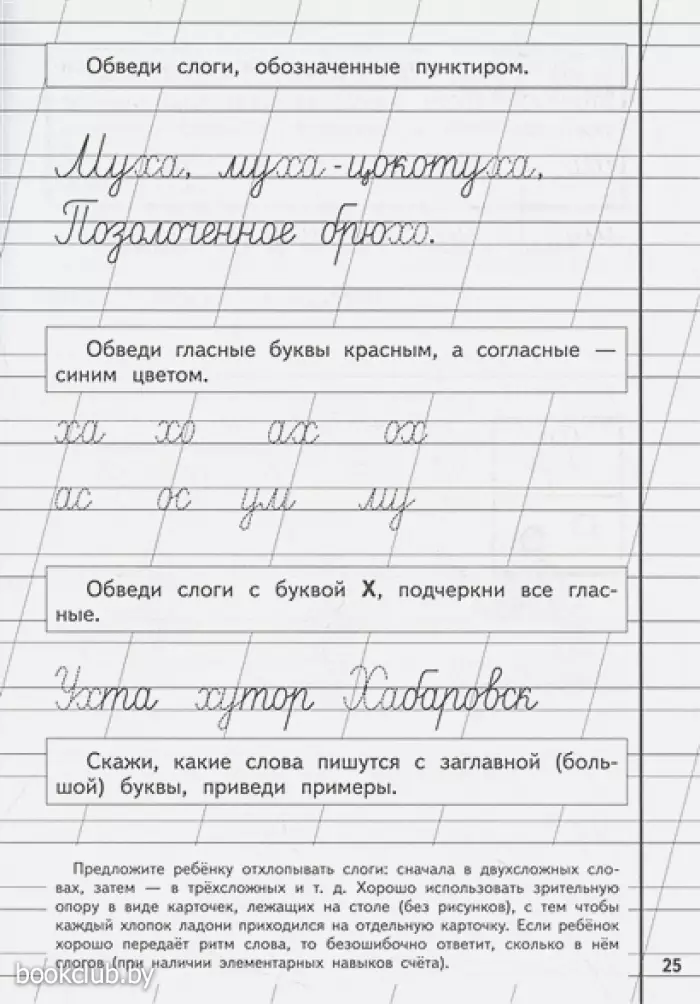 Обведи слоги, обозначенные пунктиром.
Муха, муха-цокотуха,
Позолоченное брюхо.
Обведи гласные буквы красным, а согласные —
синим цветом.
ха хо ах ох
ас ос ум му
Обведи слоги с буквой Х, подчеркни все глас-
ные.
Ухта хутор Хабаровск
Скажи, какие слова пишутся с заглавной (боль-
шой) буквы, приведи примеры.
Предложите ребёнку отхлопывать слоги: сначала в двухсложных сло-
вах, затем — в трёхсложных и т. д. Хорошо использовать зрительную
опору в виде карточек, лежащих на столе (без рисунков), с тем чтобы
каждый хлопок ладони приходился на отдельную карточку. Если ребёнок
хорошо передаёт ритм слова, то безошибочно ответит, сколько в нём
слогов (при наличии элементарных навыков счёта).
25
bookclub.by